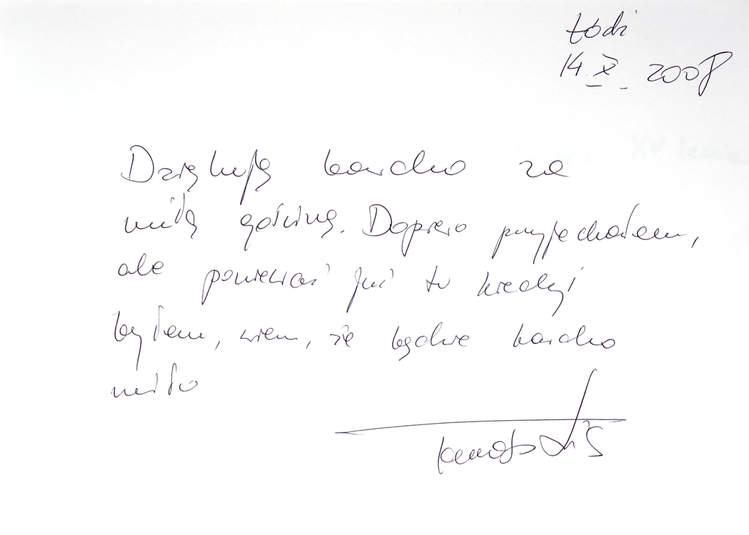 Łódź
14 X 2008
Dziękuję bardzo za
miłą gościnę. Dopiero przyjechałem,
ale ponieważ już tu kiedyś
byłem, wiem, że będzie bardzo
miło